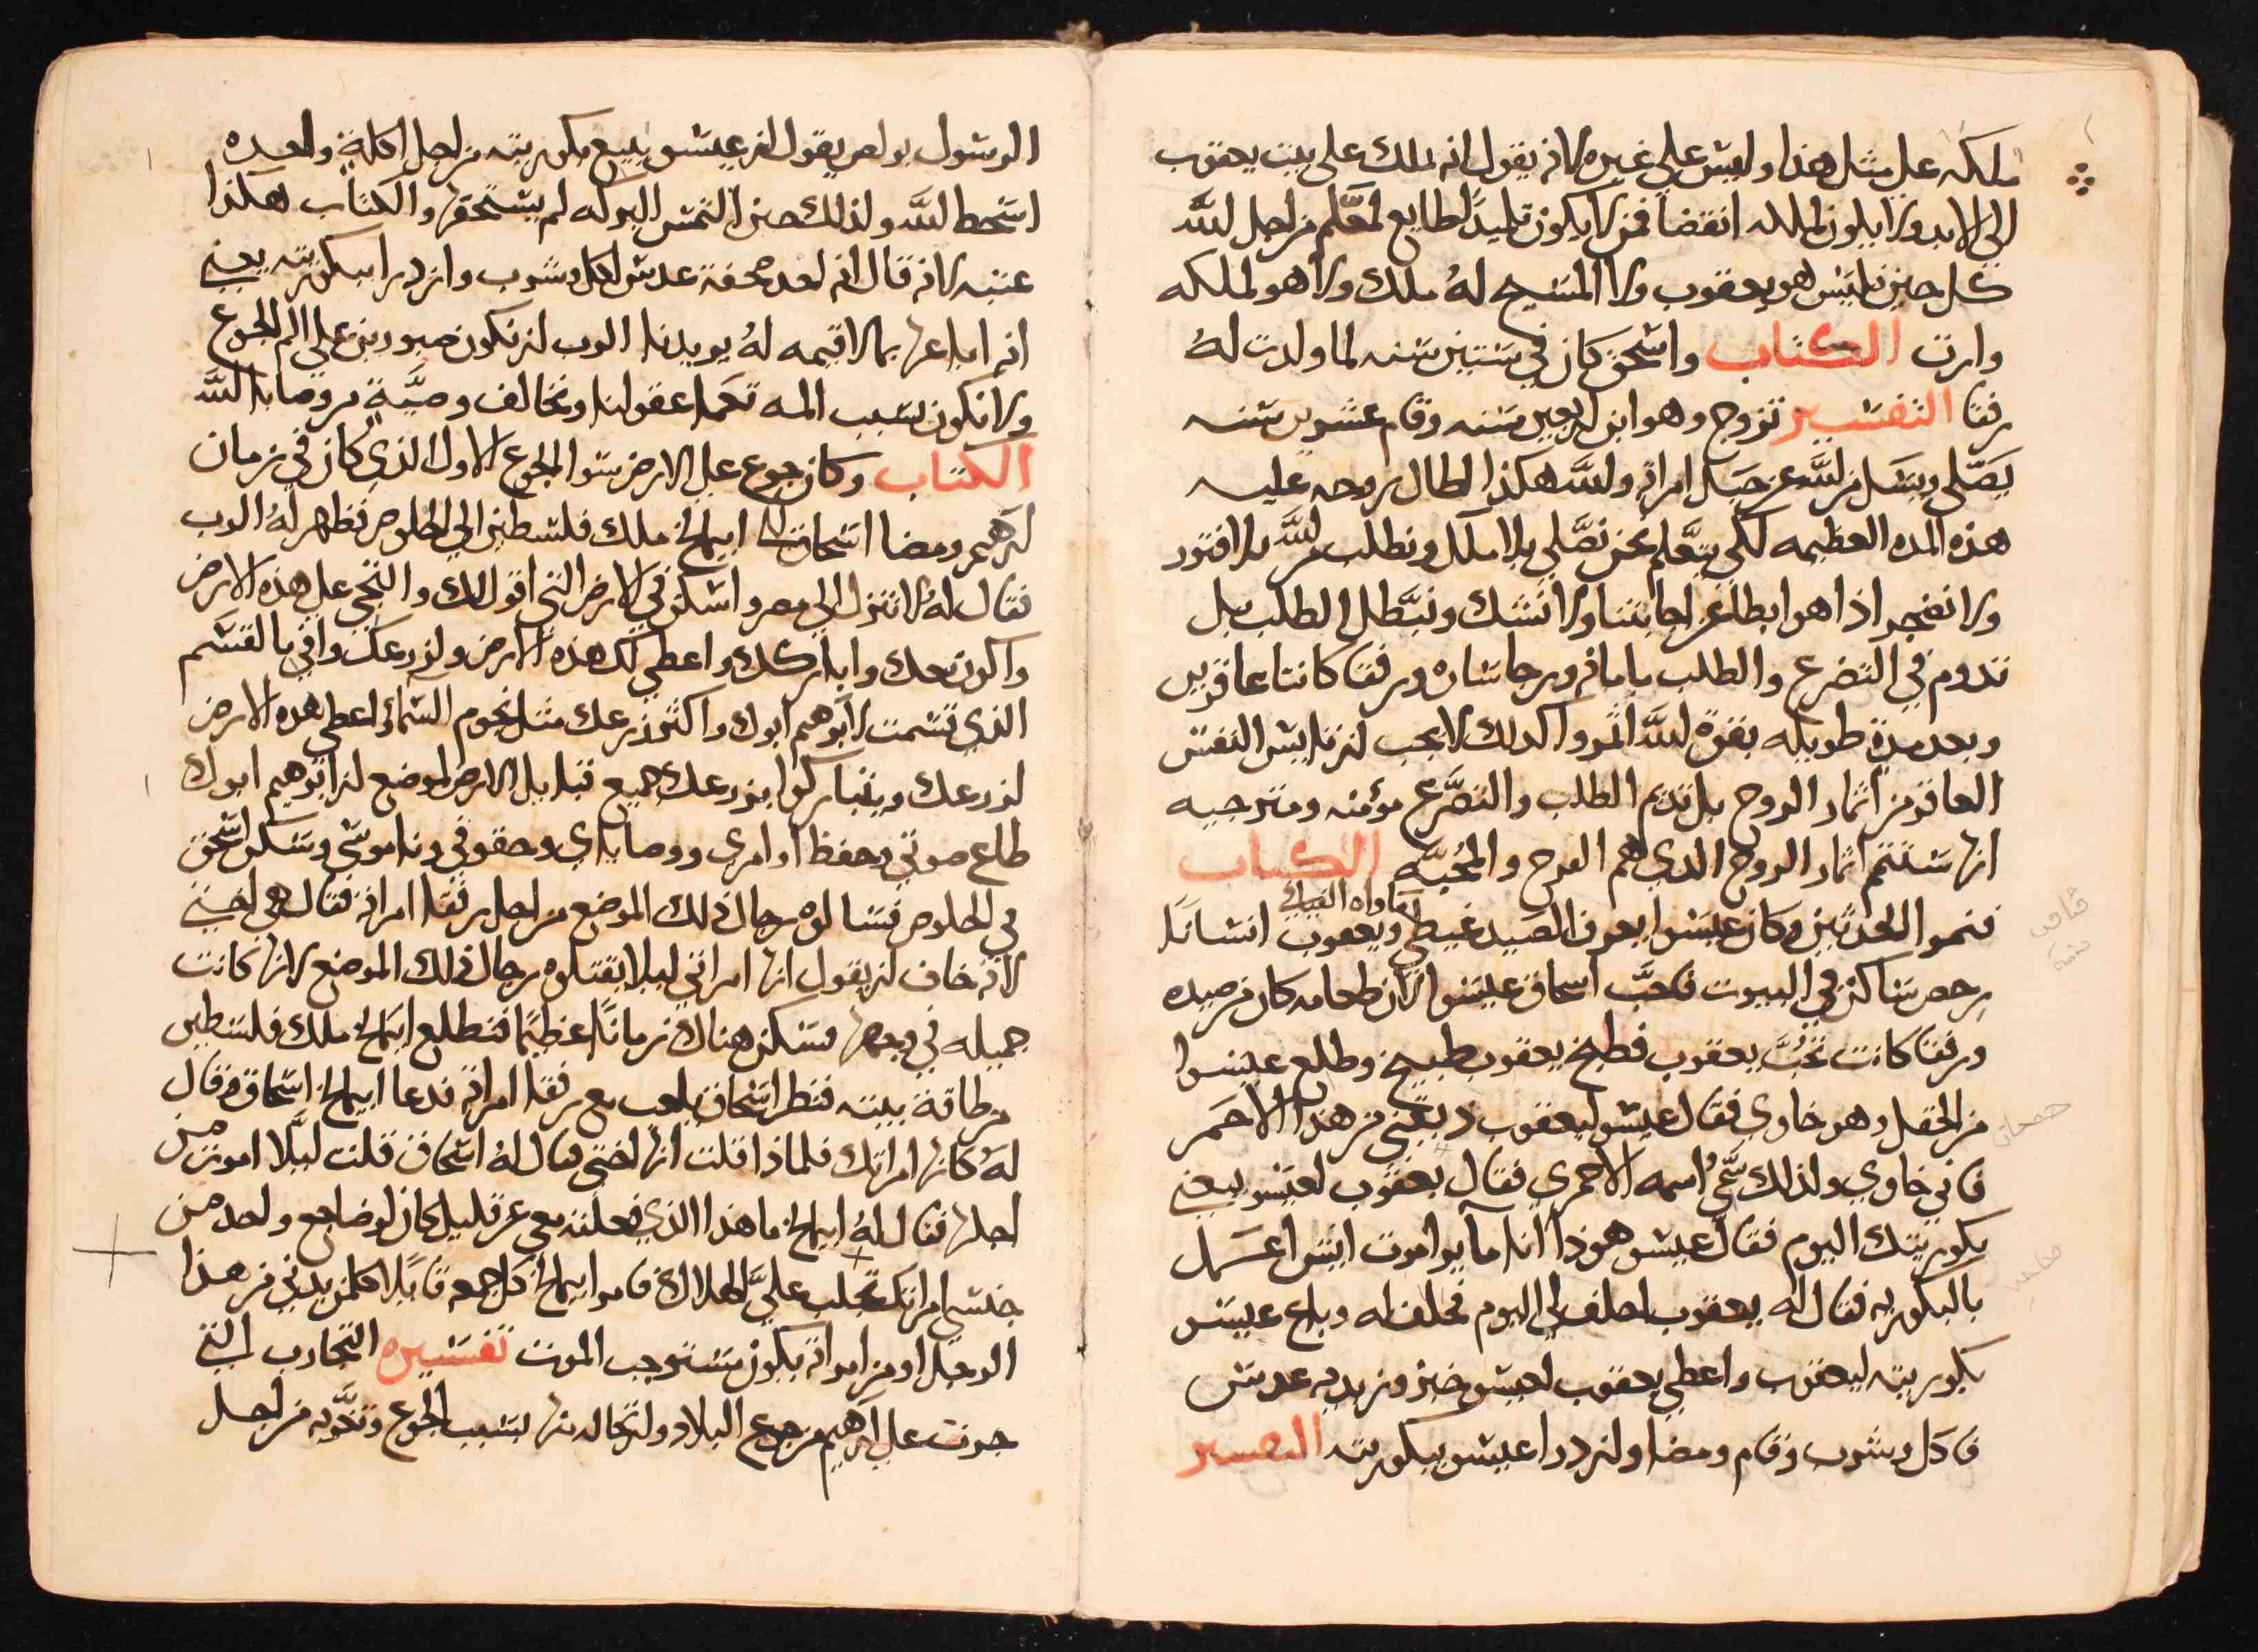 ملكه على مثل هذا وليس على غيره لانه يقول انه يملك على بيت يعقوب
الى الابد ولا يكون لملكه انقضا فمن لا يكون تلميذًا طايع لمعَّلم من اجل اللَّه
كل حين فليس هو يعقوب ولا المسيح لهُ ملك ولا هو لملكه
وارت الكتاب واسحق كان في ستين سنه لما ولدت لهُ
رفقا التفسير تزوج وهو ابن اربعين سنه وقام عشرين سنه
يصَّلي ويسل من اللَّه عن حبَل امراته واللَّه هكذا اطال روحه عليه
هذه المده العظيمه لكي يتعَّلم نحن نصَّلي بلا ملل ونطلب من اللَّه بلا فتور
ولا نضجر اذا هو ابطا عن اجابتنا ولا نشك ونبَّطل الطلب بل
ندوم في التضرع والطلب بامانه ورجا ساره ورفقا كانتا عاقرين
وبعد مدة طويله بقوة اللَّه اثمروا كدلك لا يجب ان تايس النفس
العاقر من اثمار الروح بل تديم الطلب والتضَّرع مؤمنه ومترجيه
انها ستتم اثمار الروح الدي هم الفرح والمُحبَّه الكتاب
فنموا الحدثين وكان عيسوا يعرف الصيد غيطي ويعقوب انسانًا
ماواه الفيافي
رحص ساكن في البيوت فحَبَّ اسحاق عيسوا لان طعامه كان من صيده
ورفقا كانت تحُبَّ يعقوب فطبخ يعقوب طبيخ وطلع عيسوا
من الحقل وهو خاوي فقال عيسو ليعقوب ديقني من هذا الاحمَر
فاني خاوي ولذلك سمَّي اسمه الاحمري فقال يعقوب لعيسو بيعني
بكوريتك اليوم فقال عيسو هوذا انا مآيو اموت ايش اعمل
بالبكوريه فقال له يعقوب احلف لي اليوم فحلف له وباع عيسو
بكوريته ليعقوب واعطي يعقوب لعيسو خبز وزبديه عدس
فاكل وشرب وقام ومضا وازدرا عيسو ببكوريته التفسير
الرسول بولص يقول ان عيسو ببيع بكوريته من اجل اكلة واحده
اسخط اللَّه ولذلك حين التمس البركه لم يستحقها والكتاب هكذا
عنيه لانه قال انه اخد صحفة عدس اكل وشرب وازدرا ببكوريته يعني
انه اباعها بما لا قيمه لهُ يريدنا الرب ان نكون صبورين على الم الجوع
ولا نكون بسبب المه تعما عقولنا ونخالف وصيَّة من وصايا اللَّه
الكتاب وكان جوع على الارض سوا الجوع الاول الذي كان في زمان
ابرهيم ومضا اسحاق الى ابيمالخ ملك فلسطين الي الخلوص فظهر لهُ الرب
فقال لهُ لا تنزل الى مصر واسكن في الارض التي اقول لك والتجي على هذه الارض
واكون معك واباركك واعطي لك هذه الارض ولزرعك وافي بالقسم
الذي قسمت لابرهيم ابوك واكثر زرعك مثل نجوم السماء واعطي هده الارض
لزرعك ويتباركوا بزرعك جميع قبايل الارض لموضع ان ابرهيم ابوك
طاع صوتي وحفظ اوامري ووصاياي وحقوقي وناموسي وسكن اسحق
في الخلوص فسالوه رجال ذلك الموضع من اجل رفقا امراته فقال هى اختي
لانه خاف ان يقول انها امراتي ليلا يقتلوه رجال ذلك الموضع لانها كانت
جميله في وجهها فسكن هناك زمانًا عظيمًا فتطلع ابيمالخ ملك فلسطين
من طاقة بيته فنظر اسحاق يلعب مع رفقا امراته فدعا ابيمالخ اسحاق وقال
لهُ كانها امراتك فلماذا قلت انها اختي فقال لهُ اسحاق قلت ليَّلا اموت من
اجلها فقال لهُ ابيمالخ ما هذا الذي فعلته معي عن قليل كان لو ضاجع واحد من
جنسي امراتك تجلب عليَّ الهلاك فامر ابيمالخ كل جمعه قايلًا كلمن يدني من هذا
الرجل او من امراته يكون مستوجب الموت تفسيره التجارب التي
جرت على ابرهيم من جوع البلاد وانتحاله منها بسبب الجوع وتخَّوبه من اجل